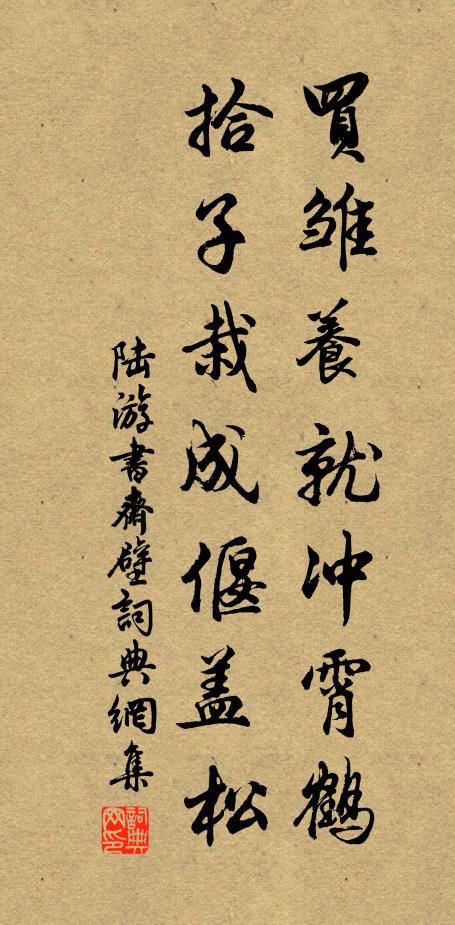 買雏養就冲霄鶴
拾子栽成偃盖松
陆游書齋壁詞典網集
詞典網印